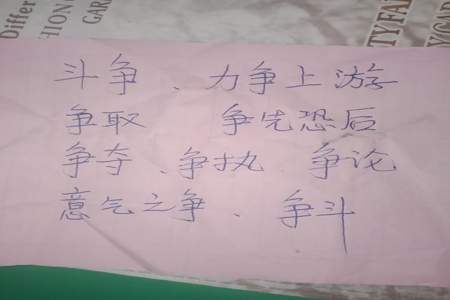 Differ
HION
GAR
TYFAI
Y
GAR
斗争、力争上游
争取 争先恐后
争夺、争执 争论
意气之争、争斗